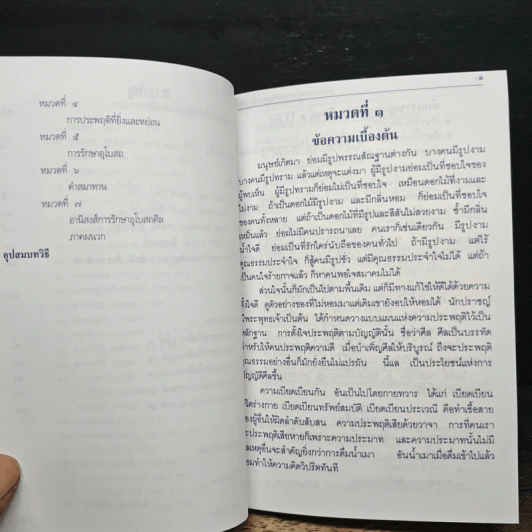 หมวดที่ ๔
การประพฤติที่ยิ่งและหย่อน
หมวดที่ ๕
การรักษาอุโบสถ
หมวดที่ ๖
คำสมาทาน
หมวดที่ ๗
อานิสงส์การรักษาอุโบสถศีล
ภาคผนวก
อุปสมบทวิธี
๑
หมวดที่ ๑
ข้อความเบื้องต้น
มนุษย์เกิดมา ย่อมมีรูปพรรณสัณฐานต่างกัน บางคนมีรูปงาม
บางคนมีรูปทราม แล้วแต่เหตุจะแต่งมา ผู้มีรูปงามย่อมเป็นที่ชอบใจของ
ผู้พบเห็น ผู้มีรูปทรามก็ย่อมไม่เป็นที่ชอบใจ เหมือนดอกไม้ที่งามและ
ไม่งาม ถ้าเป็นดอกไม้มีรูปงาม และมีกลิ่นหอม ก็ย่อมเป็นที่ชอบใจ
ของคนทั้งหลาย แต่ถ้าเป็นดอกไม้ที่มีรูปและสีสันไม่สวยงาม ซ้ำมีกลิ่น
เหม็นแล้ว ย่อมไม่มีคนปรารถนาเลย คนเราก็เช่นเดียวกัน มีรูปงาม
น้ำใจดี ย่อมเป็นที่รักใคร่นับถือของคนทั่วไป ถ้ามีรูปงาม แต่ไร้
คุณธรรมประจำใจ ก็สู้คนมีรูปชั่ว แต่มีคุณธรรมประจำใจไม่ได้ แต่ถ้า
เป็นคนใจร้ายกาจแล้ว ก็หาคนพอใจสมาคมไม่ได้
ส่วนใจนั้นก็มักเป็นไปตามพื้นเดิม แต่ก็มีทางแก้ไขให้ดีได้ด้วยความ
ตั้งใจดี ดูตัวอย่างของที่ไม่หอมมาแต่เดิมเขายังอบให้หอมได้ นักปราชญ์
มีพระพุทธเจ้าเป็นต้น ได้กำหนดวางแบบแผนแห่งความประพฤติไว้เป็น
หลักฐาน การตั้งใจประพฤติตามบัญญัตินั้น ชื่อว่าศีล ศีลเป็นบรรทัด
สำหรับให้คนประพฤติความดี เมื่อบำเพ็ญศีลให้บริบูรณ์ ถึงจะประพฤติ
คุณธรรมอย่างอื่นก็มักยั่งยืนไม่แปรผัน นี้แล เป็นประโยชน์แห่งการ
บัญญัติศีลขึ้น
ความเบียดเบียนกัน อันเป็นไปโดยกายทวาร ได้แก่ เบียดเบียน
ชีวิตร่างกาย เบียดเบียนทรัพย์สมบัติ เบียดเบียนประเวณี คือทำเชื้อสาย
ของผู้อื่นให้ผิดลำดับสับสน ความประพฤติเสียด้วยวาจา การที่คนเรา
จะประพฤติเสียหายก็เพราะความประมาท และความประมาทนั้นไม่มี
เหตุอื่นจะสำคัญยิ่งกว่าการดื่มน้ำเมา อันน้ำเมาเมื่อดื่มเข้าไปแล้ว
ย่อมทำให้ความคิดวิปริตทันที